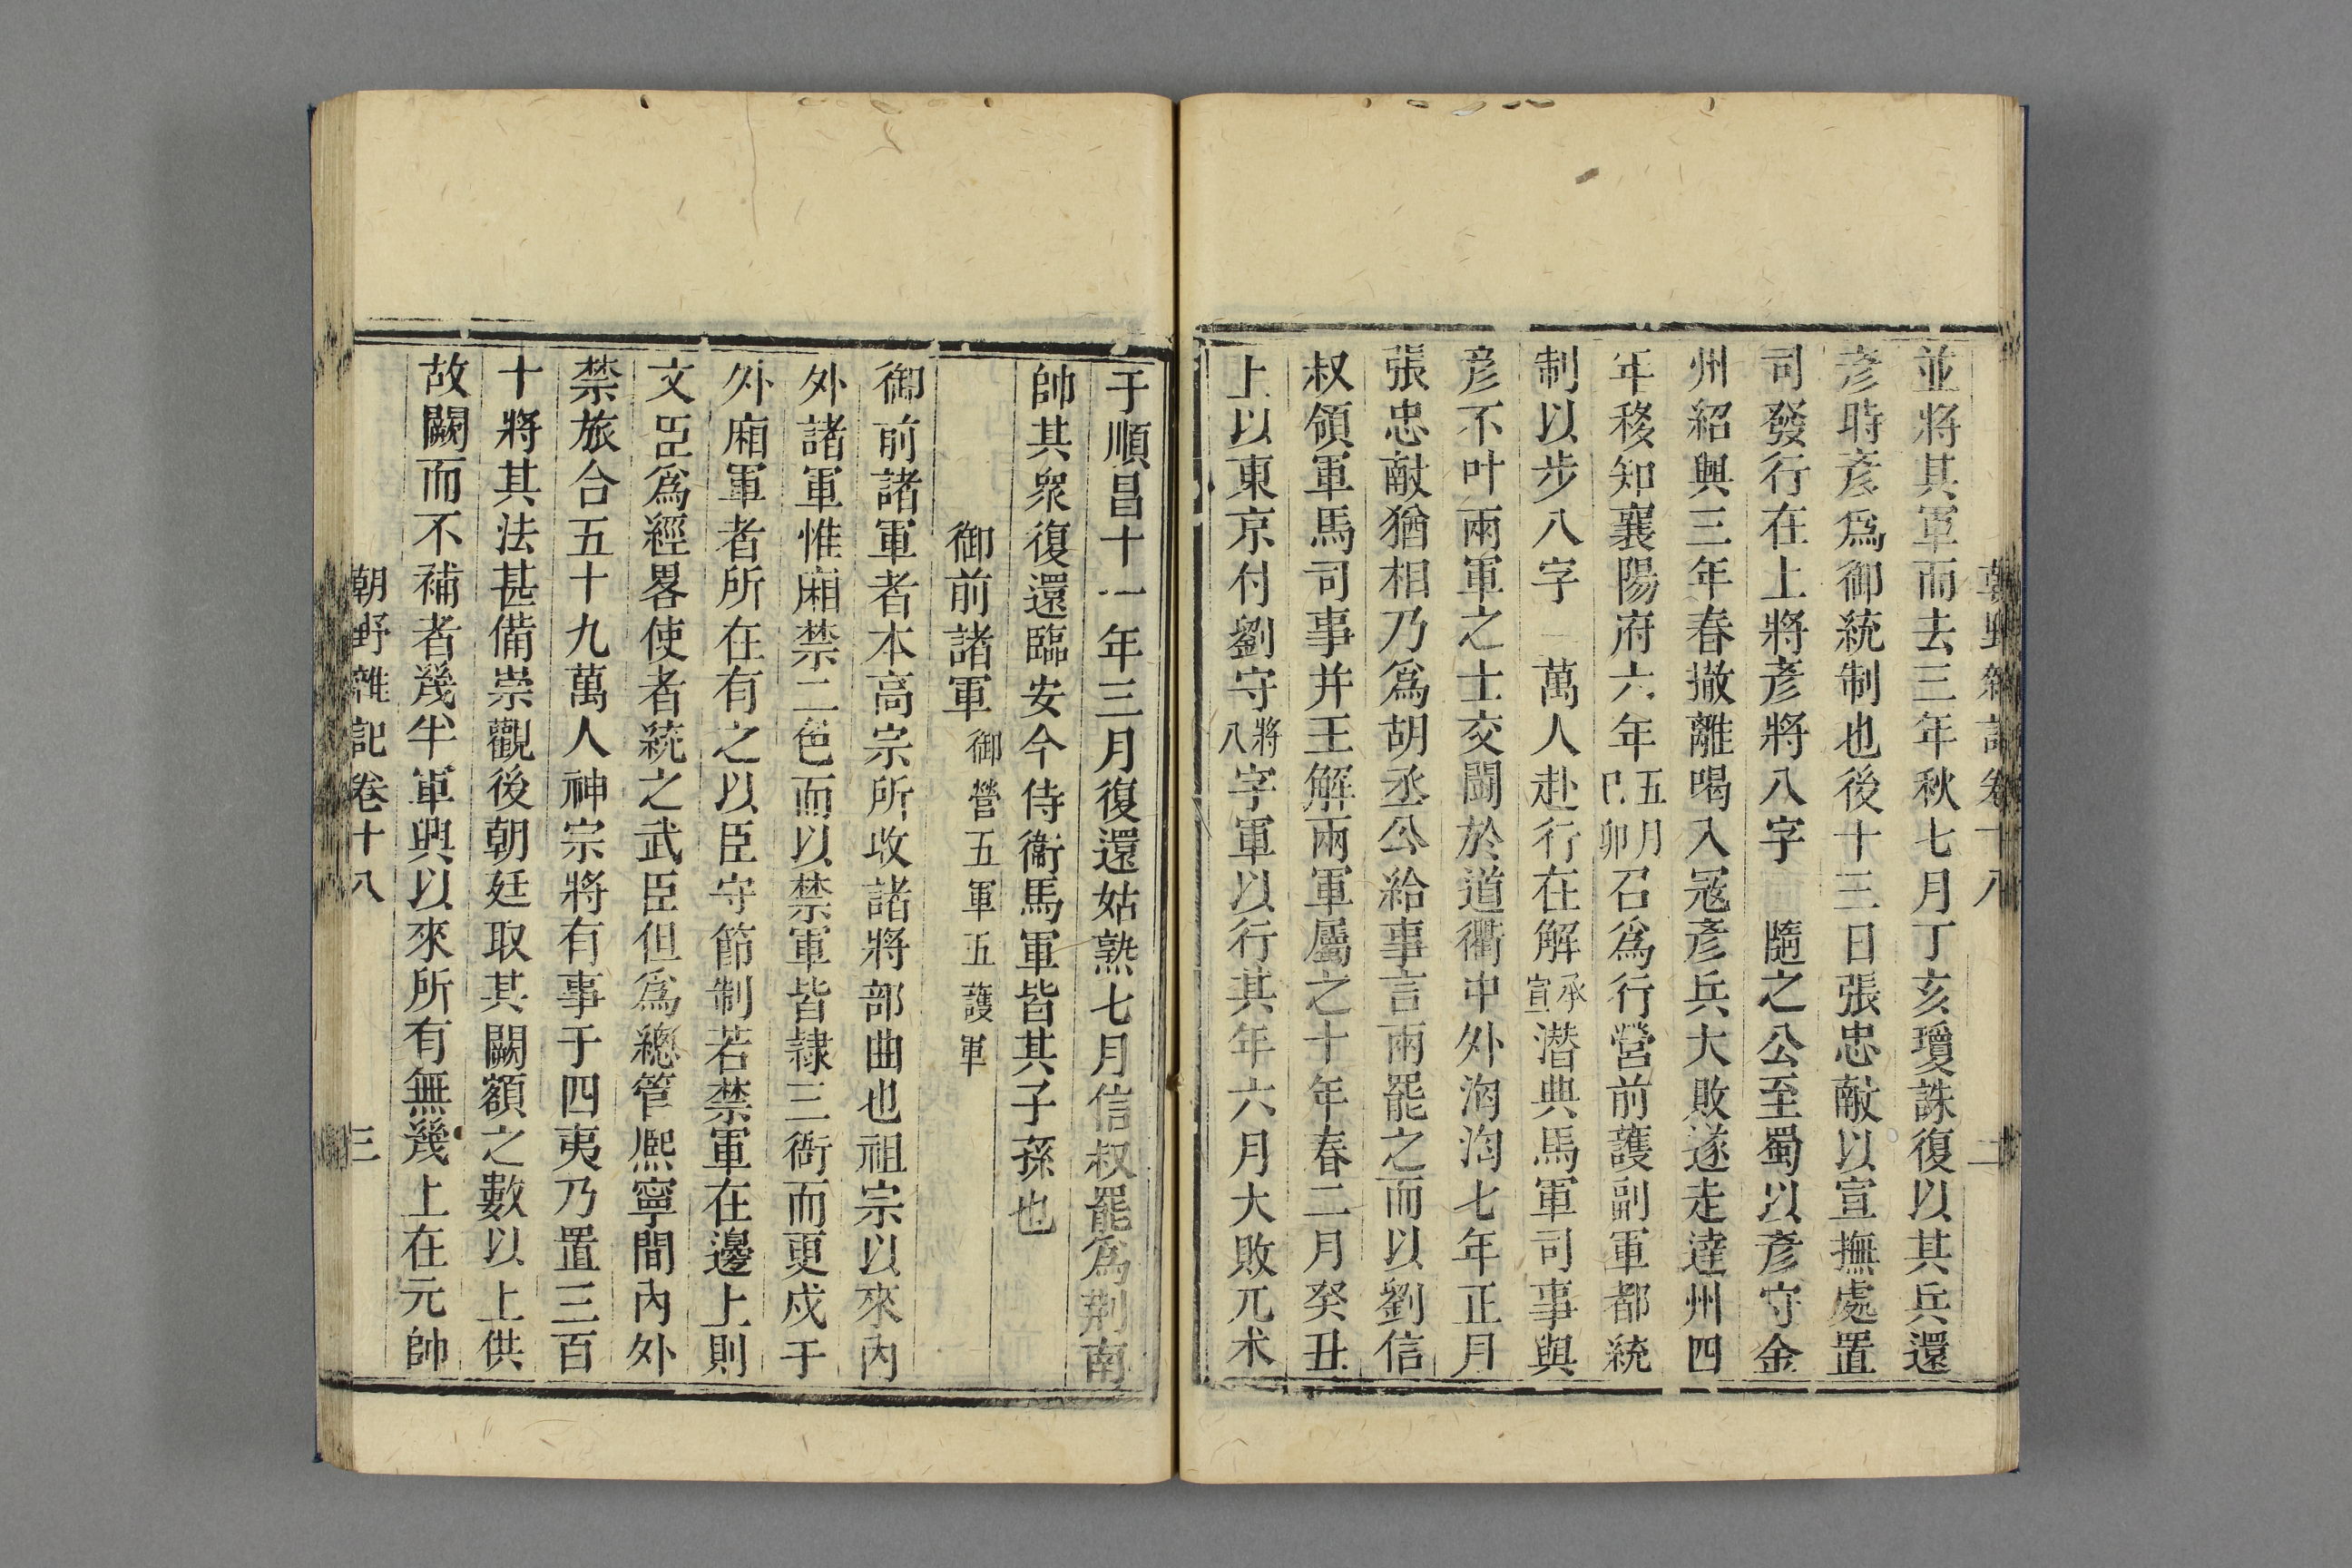 朝野雜記卷十八 二
並將其軍而去三年秋七月丁亥瓊誅復以其兵還
彥時彥爲御統制也後十三日張忠敵以宣撫處置
司發行在上將彥將八字 隨之公至蜀以彥守金
州紹興三年春撤離喝入冦彥兵大敗遂走達州四
年移知襄陽府六年五月巳卯召爲行營前護副軍都統
制以步八字 萬人赴行在解承宣潜典馬軍司事與
彥不叶兩軍之士交閧於道衢中外洶洶七年正月
張忠敵猶相乃爲胡丞公給事言兩罷之而以劉信
叔領軍馬司事并王解兩軍屬之十年春二月癸丑
上以東京付劉守將八字軍以行其年六月大敗兀朮
于順昌十一年三月復還姑熟七月信叔罷爲荆南
帥其衆復還臨安今侍衞馬軍皆其子孫也
御前諸軍 御營五軍 五護軍
御前諸軍者本高宗所收諸將部曲也祖宗以來內
外諸軍惟廂禁二色而以禁軍皆隷三衙而更戍于
外廂軍者所在有之以臣守節制若禁軍在邊上則
文臣爲經畧使者統之武臣但爲總管熈寧間內外
禁旅合五十九萬人神宗將有事于四夷乃置三百
十將其法甚備崇觀後朝廷取其闕額之數以上供
故闕而不補者幾半軍興以來所有無幾上在元帥
朝野雜記卷十八 三